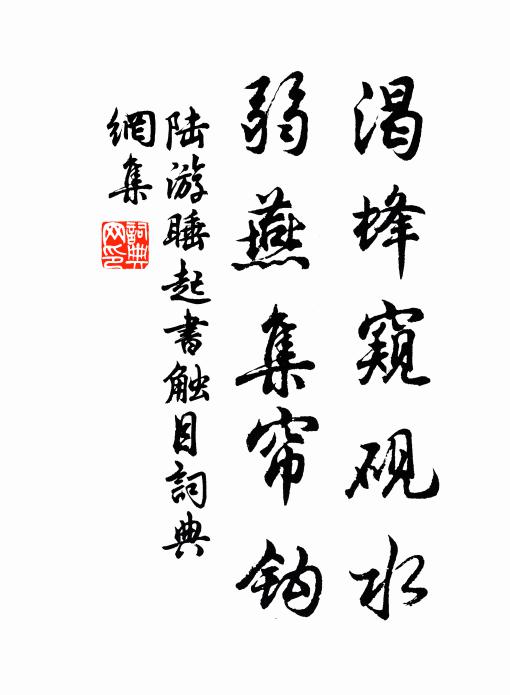 渴蜂窺硯水
弱燕集帘鈎
陆游睡起書触目詞典
網集
詞典网印